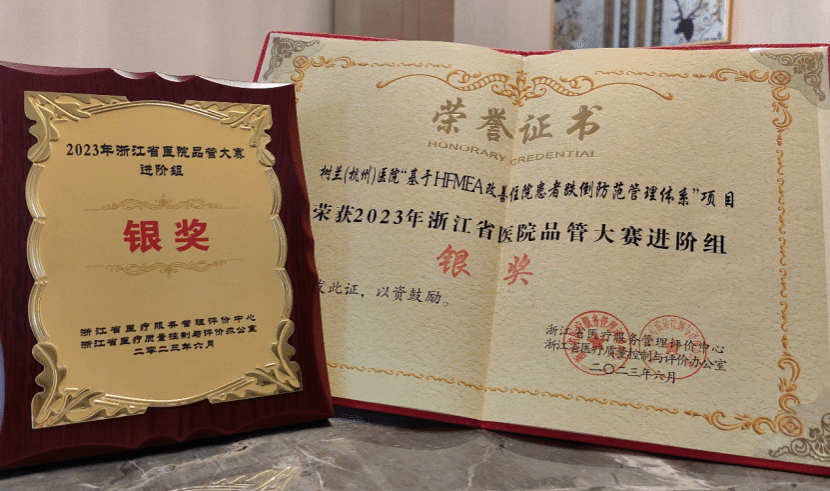 2023年浙江省医院品管大赛
进阶组
银奖
浙江省医疗服务管理评价中心
浙江省医疗质量控制与评价办公室
二零二三年六月
荣誉证书
HONORARY CREDENTIAL
树兰(杭州)医院“基于HFMEA改善住院患者跌倒防范管理体系”项目
荣获2023年浙江省医院品管大赛进阶组
银奖
发此证，以资鼓励。
浙江省医疗服务管理评价中心
浙江省医疗质量控制与评价办公室
二〇二三年六月